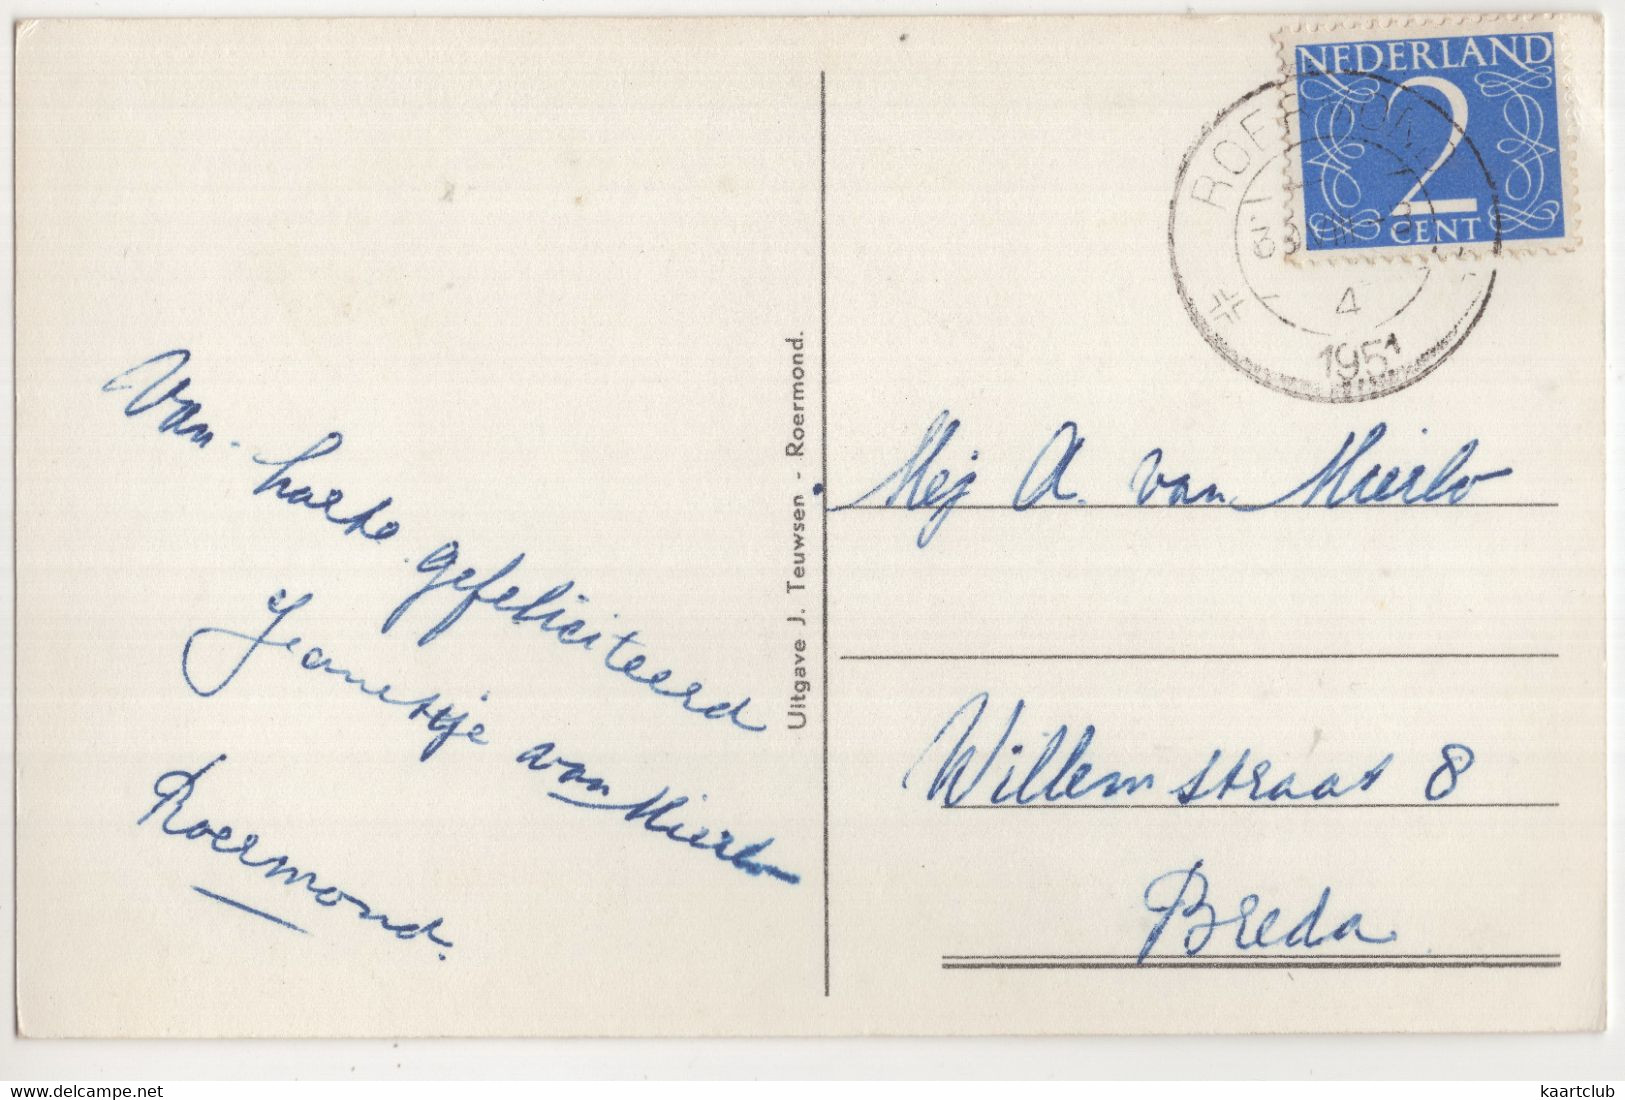 NEDERLAND
2
CENT
ROERMOND
3 VIII
4
1951
Van harte gefeliciteerd
Jeanettje van Mierlo
Roermond.
Uitgave J. Teuwsen - Roermond.
Mej A. van Mierlo
Willemstraat 8
Breda
www.delcampe.net
kaartclub